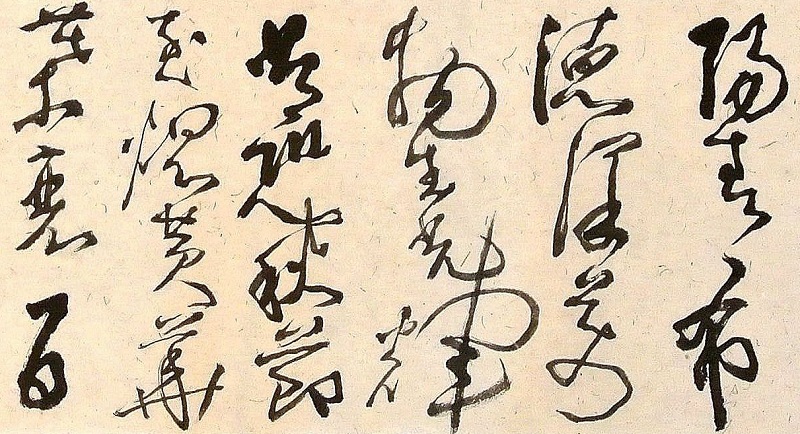 陽春布
德澤萬
物生光輝
常恐秋節
至焜黃華
葉衰百